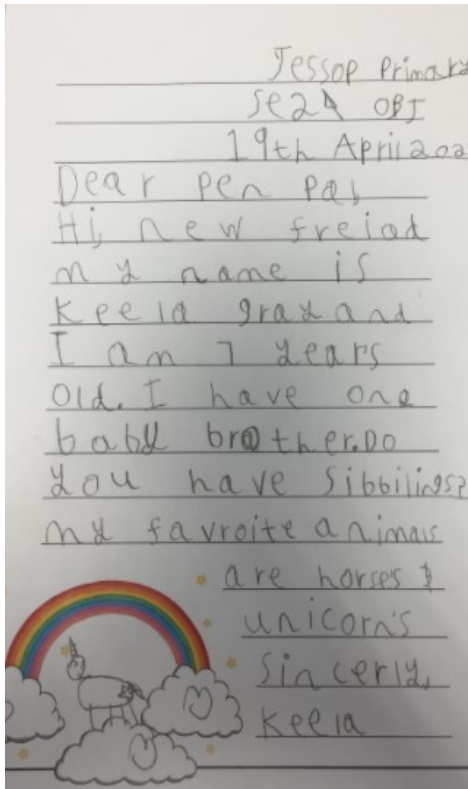 Jessop Primary
SE24 0BJ
19th April 202
Dear Pen Pal,
Hi, new freiod
my name is
Keela gray and
I am 7 years
old. I have one
baby brother. Do
you have Sibbilings?
my favroite animals
are horses &
unicorn's
Sincerly,
Keela